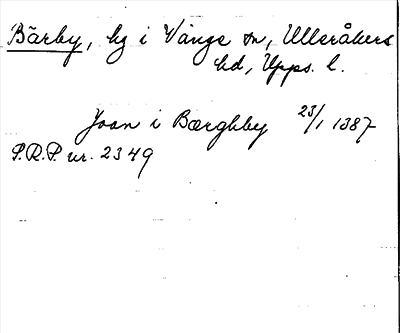 Bärby, by i Vänge sn, Ulleråkers
hd, Upps. l.
Joan i Bærghby 23/1 1387
P.R.P. nr. 2349